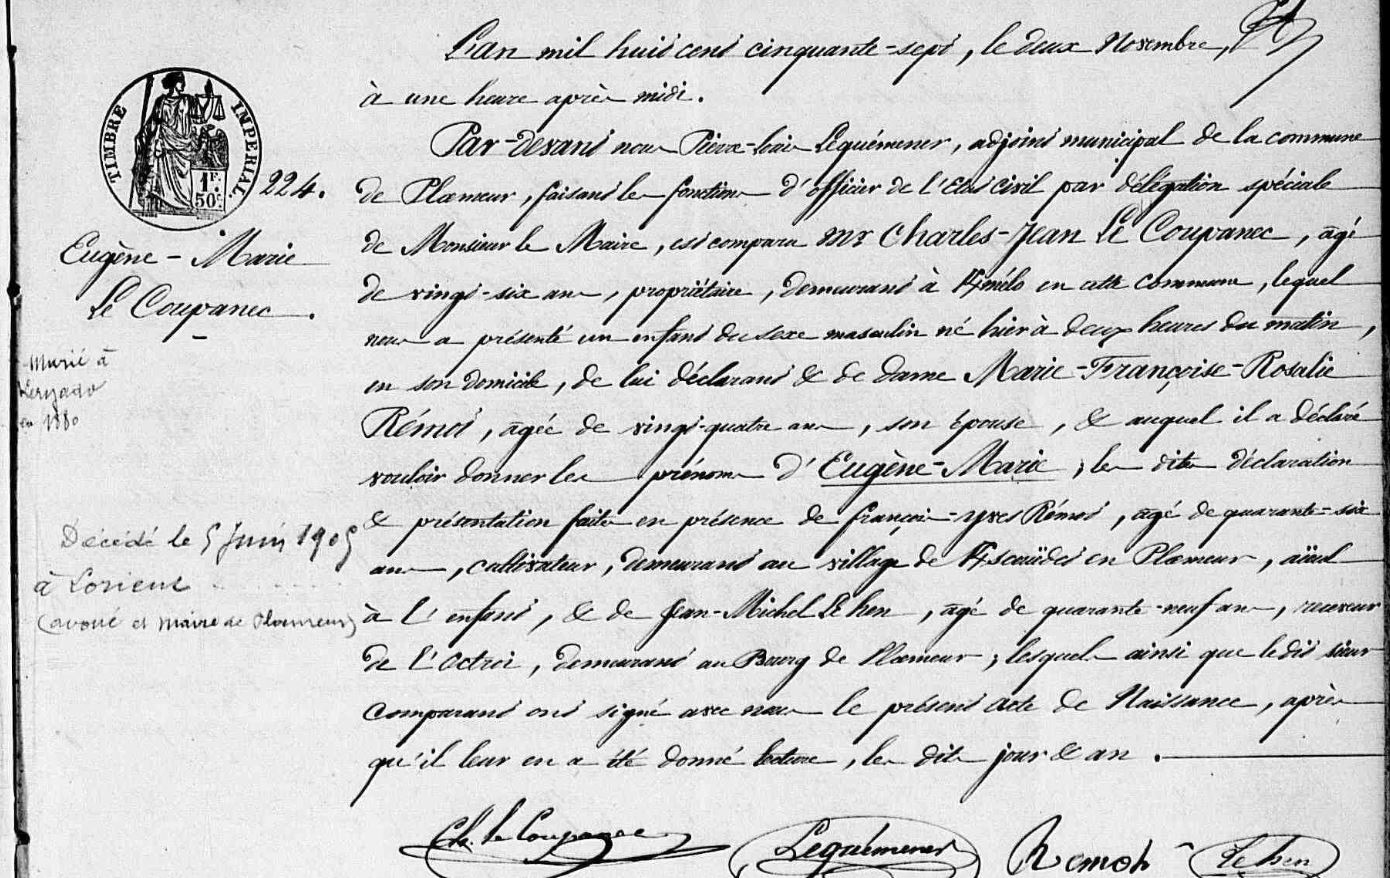 L'an mil huit cent cinquante-sept, le deux Novembre,
à une heure après midi.
TIMBRE IMPERIAL
1F.
50c.
224.
Eugène-Marie
Le Coupanec.
Marié à
en 1880
Décédé le 5 Juin 1905
à Lorient
(avoué et maire de Ploemeur)
Par-devant nous Pierre-Louis Lequémener, adjoint municipal de la commune
de Plœmeur, faisant les fonctions d'officier de l'Etat civil par délégation spéciale
de Monsieur le Maire, est comparu Mr Charles-Jean Le Coupanec, âgé
de vingt-six ans, propriétaire, demeurant à Kmélo en cette commune, lequel
nous a présenté un enfant du sexe masculin né hier à deux heures du matin,
en son domicile, de lui déclarant & de dame Marie-Françoise-Rosalie
Rémot, âgée de vingt-quatre ans, son épouse, & auquel il a déclaré
vouloir donner les prénoms d'Eugène-Marie; les dites déclaration
& présentation faites en présence de françois-yves Rémot, âgé de quarante-six
ans, cultivateur, demeurant au village de Kscaüdet en Plœmeur, aïeul
à l'enfant, & de Jean-Michel Le hen, âgé de quarante-neuf ans, receveur
de l'octroi, demeurant au Bourg de Plœmeur; lesquels ainsi que le dit sieur
comparant ont signé avec nous le présent acte de Naissance, après
qu'il leur en a été donné lecture, les dits jour & an.
Ch. Le Coupanec Lequémener Remot Le hen